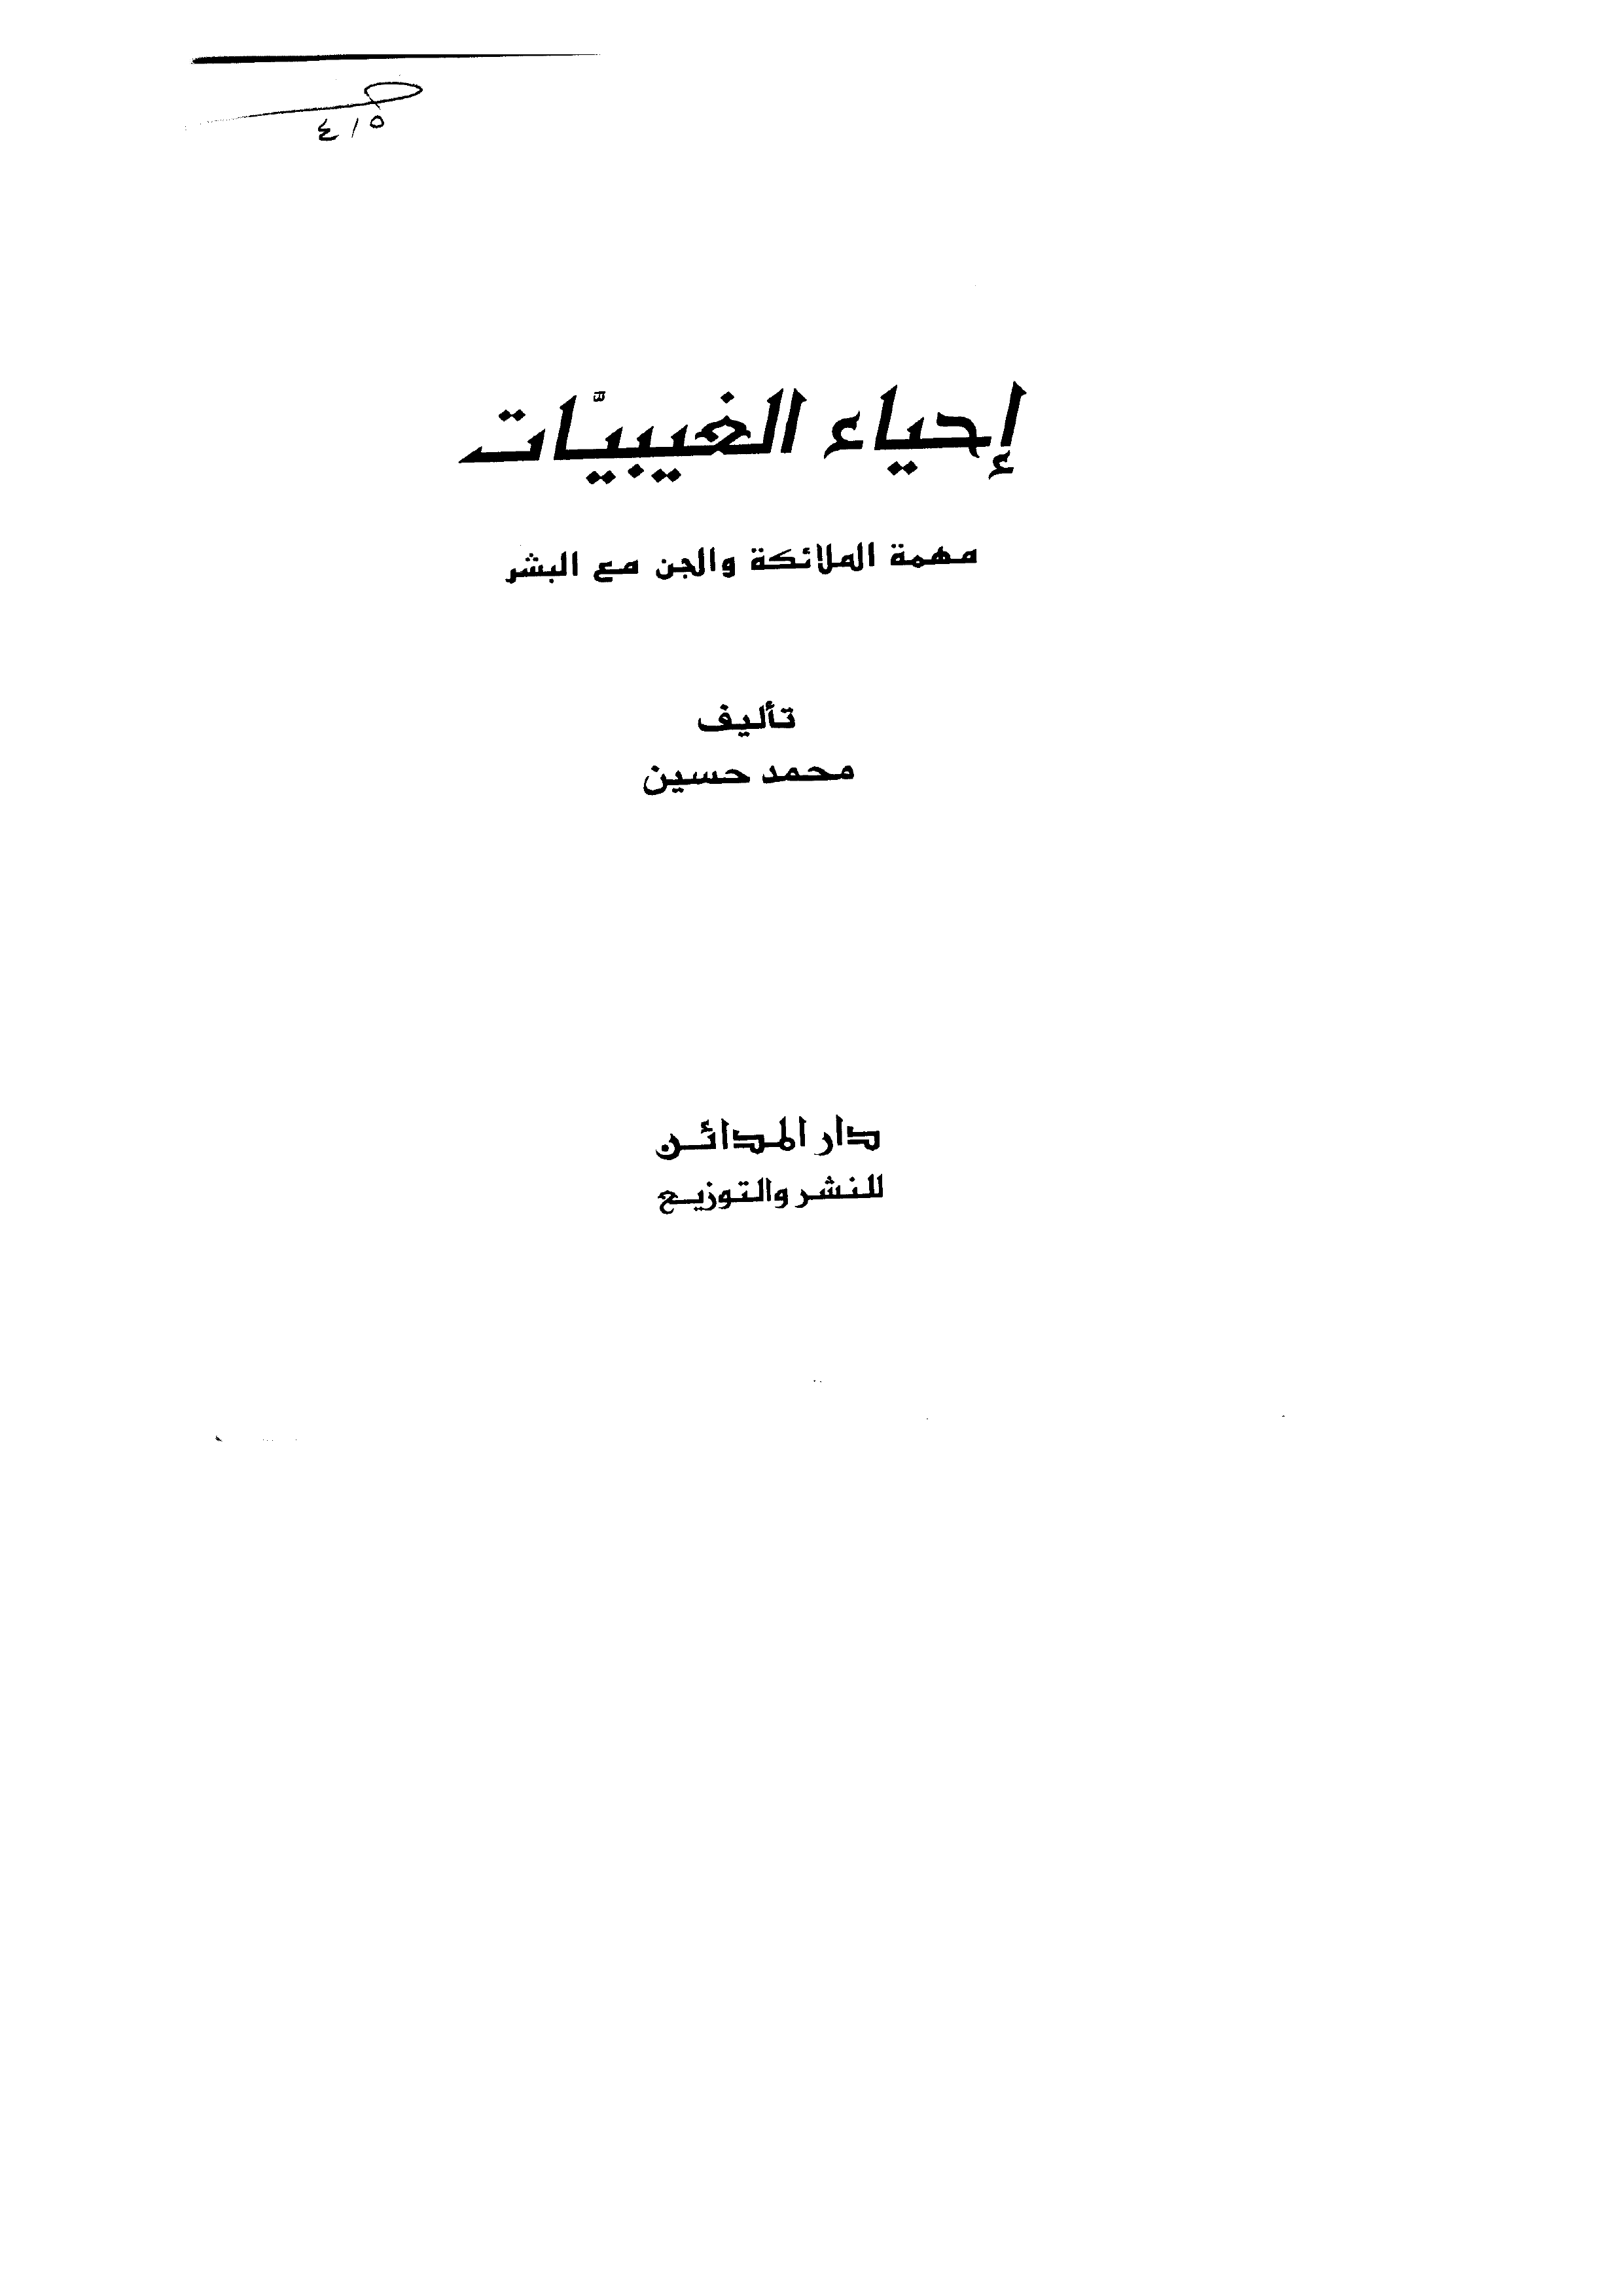 ٤/٥
إحياء الغيبيّات
مهمة الملائكة والجن مع البشر
تأليف
محمد حسين
دار المدائن
للنشر والتوزيع